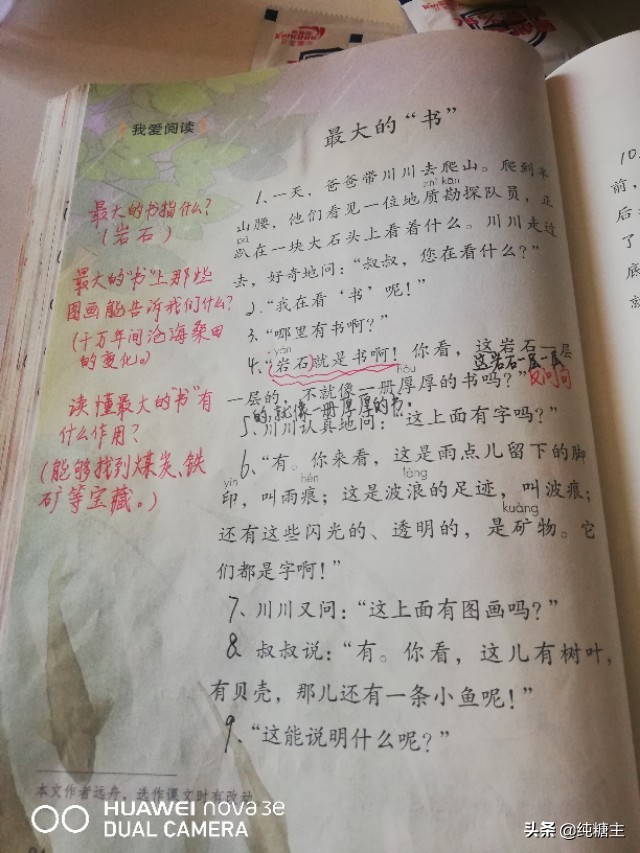 我爱阅读
最大的“书”
1、一天，爸爸带川川去爬山。爬到半
zhì kān
山腰，他们看见一位地质勘探队员，正
pā
趴在一块大石头上看着什么。川川走过
去，好奇地问：“叔叔，您在看什么？”
2、“我在看‘书’呢！”
3、“哪里有书啊？”
yán
4、“岩石就是书啊！你看，这岩石一层
这岩石一层一层
hòu
一层的，不就像一册厚厚的书吗？”
反问句
的，就像一册厚厚的书。
5、川川认真地问：“这上面有字吗？”
6、“有。你来看，这是雨点儿留下的脚
yìn
hén
印，叫雨痕；这是波浪的足迹，叫波痕；
kuàng
还有这些闪光的、透明的，是矿物。它
们都是字啊！”
7、川川又问：“这上面有图画吗？”
8、叔叔说：“有。你看，这儿有树叶，
有贝壳，那儿还有一条小鱼呢！”
9、“这能说明什么呢？”
最大的书指什么？
（岩石）
最大的“书”上那些
图画能告诉我们什么？
（千万年间沧海桑田
的变化。）
读懂最大的“书”有
什么作用？
（能够找到煤炭、铁
矿等宝藏。）
本文作者远舟，选作课文时有改动
10、
前，
后
了
底
HUAWEI nova 3e
DUAL CAMERA
头条 @纯糖主